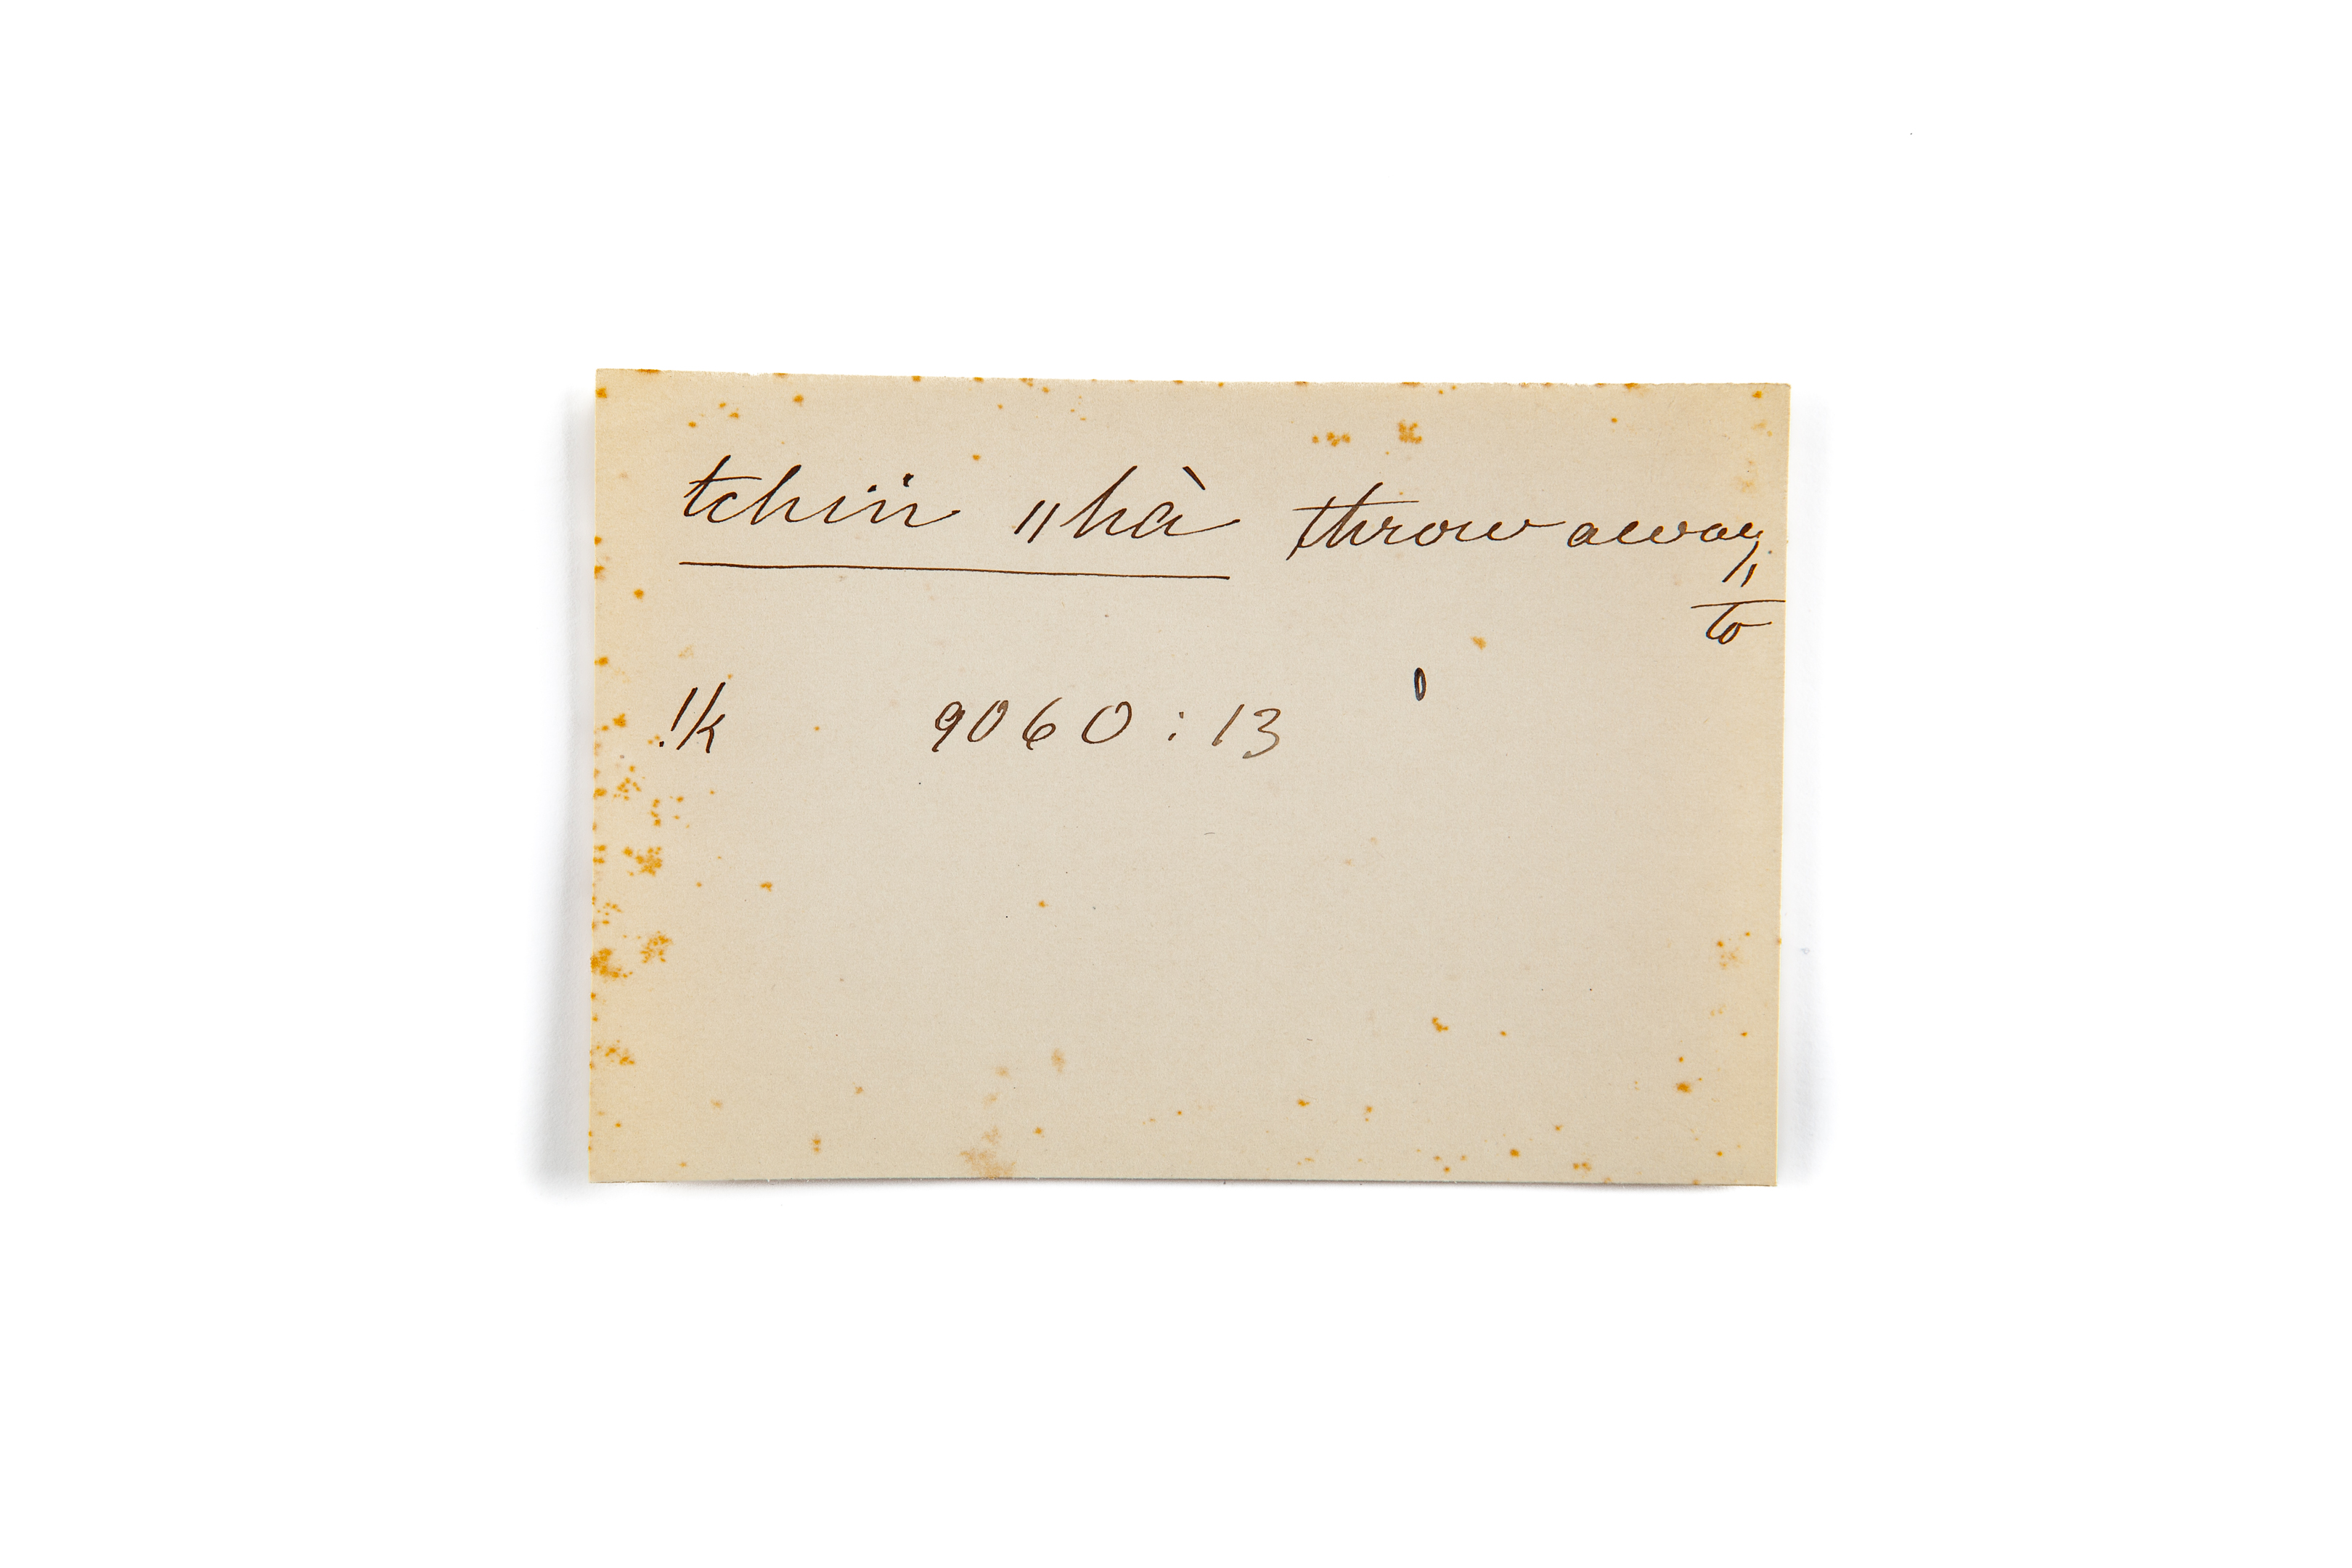 tchiïï ǁhà throw away,
to
!k 9060 : 13